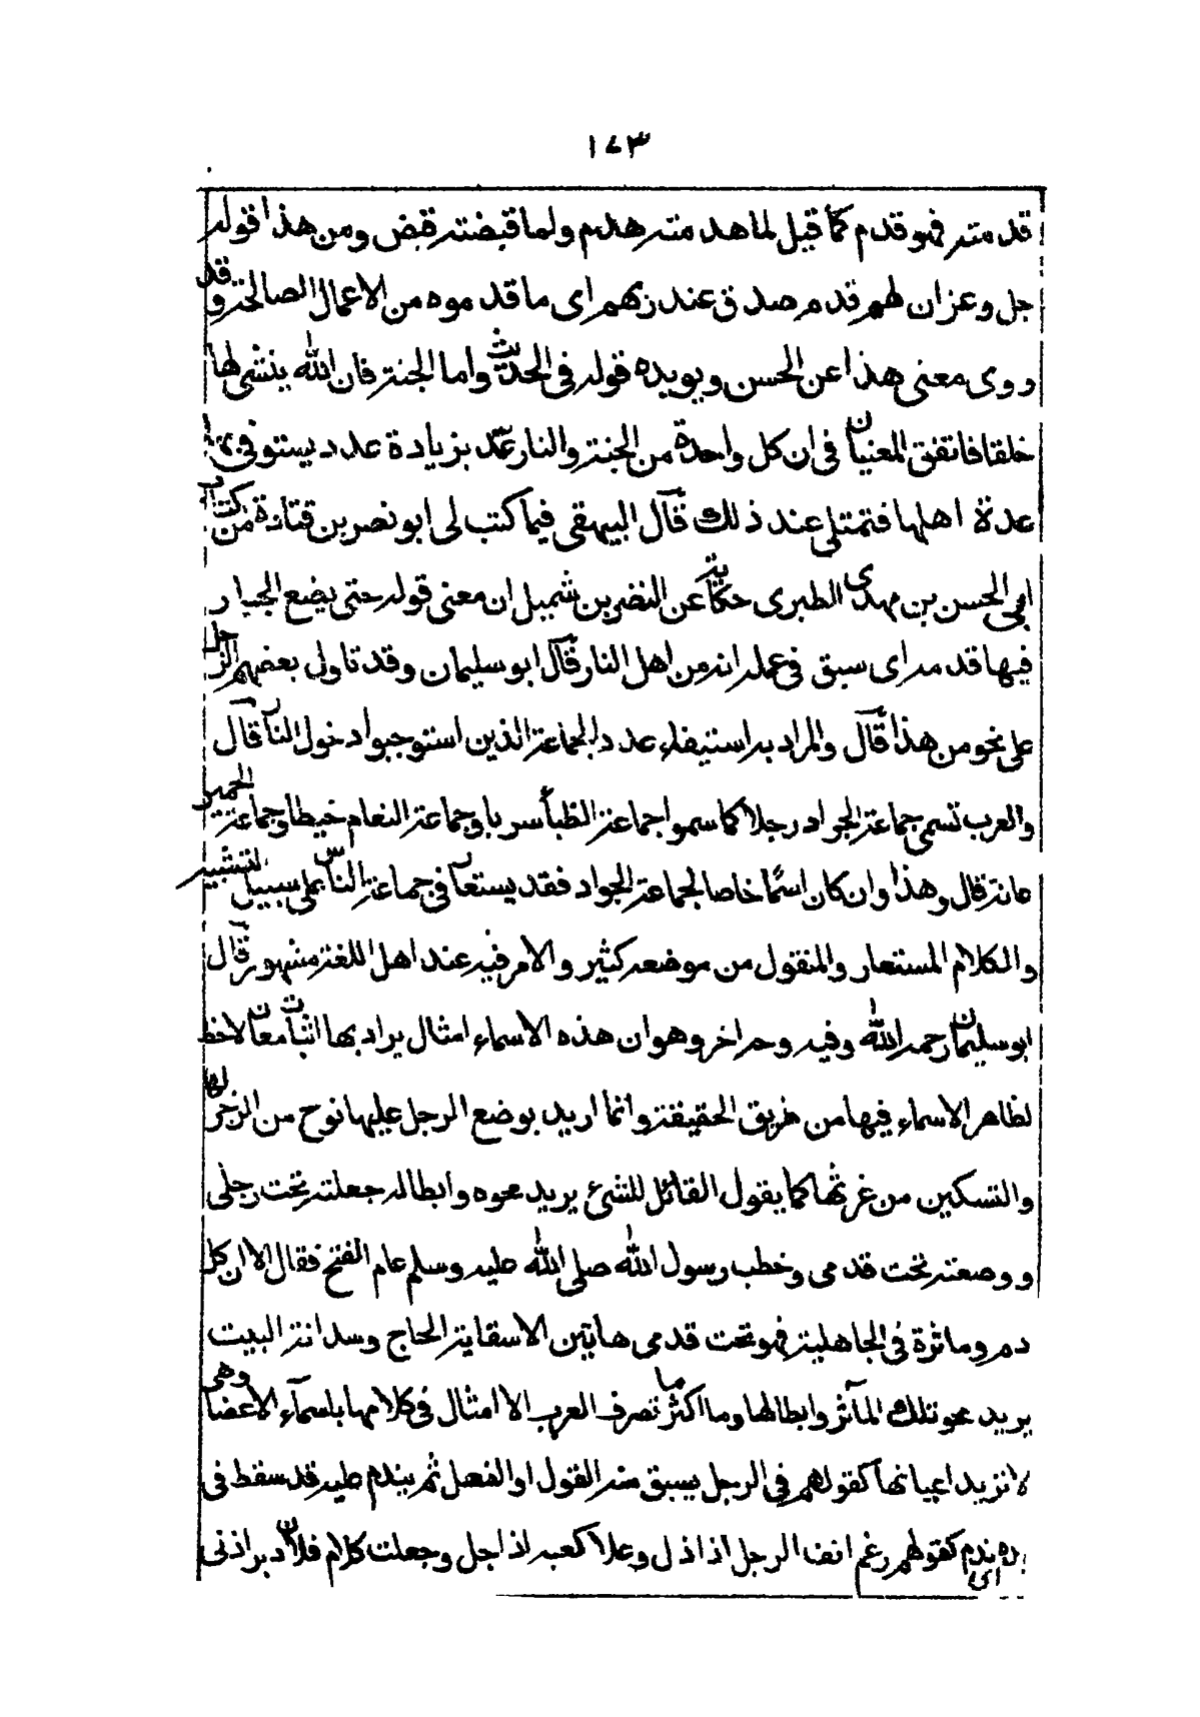 ١٧٣
قدمته فهو قدم كما قيل لما هدمته هدم ولما قبضته قبض ومن هذا قوله
جل وعز ان لهم قدم صدق عند ربهم اى ما قدموه من الاعمال الصالحة وقد
روى معنى هذا عن الحسن ويويده قوله فى الحديث واما الجنة فان الله ينشى لها
خلقا فاتفق المعنيان فى ان كل واحدة من الجنة والنار تمد بزيادة عدد يستوفى بها
عدة اهلها فتمتلى عند ذلك قال البيهقى فيما كتب لى ابو نصر بن قتادة من كتاب
ابى الحسن بن مهدى الطبرى حكاية عن النضر بن شميل ان معنى قوله حتى يضع الجبار
فيها قدمه اى سبق فى علمه انه من اهل النار قال ابو سليمان وقد تاول بعضهم الرجل
على نحو من هذا قال والمراد به استيفاء عدد الجماعة الذين استوجبوا دخول النار قال
والعرب تسمى جماعة الجراد رجلا كما سموا جماعة الظبأ سربا وجماعة النعام خيطا وجماعة الحمير
عانة قال وهذا وان كان اسما خاصا لجماعة الجراد فقد يستعار فى جماعة الناس على سبيل التشبيه
والكلام المستعار والمنقول من موضعه كثير والامر فيه عند اهل اللغة مشهور قال
ابو سليمان رحمه الله وفيه وجه اخر وهو ان هذه الاسماء امثال يراد بها اثبات معان لاحظ
لظاهر الاسماء فيها من طريق الحقيقة وانما اريد بوضع الرجل عليها نوح من الزجر لها
والتسكين من غربها كما يقول القائل للشىء يريد محوه وابطاله جعلته تحت رجلى
ووضعته تحت قدمى وخطب رسول الله صلى الله عليه وسلم عام الفتح فقال الا ان كل
دم وماثرة فى الجاهلية فهو تحت قدمى هاتين الا سقاية الحاج وسدانة البيت
يريد محو تلك المآثر وابطالها وما اكثر ما تصرف العرب الامثال فى كلامها باسمآء الاعضا وهى
لا تريد اعيانها كقولهم فى الرجل يسبق منه القول او الفعل ثم يندم عليه قد سقط فى
يده اى ندم كقولهم رغم انف الرجل اذا ذل وعلا كعبه اذا جل وجعلت كلام فلان دبر اذنى